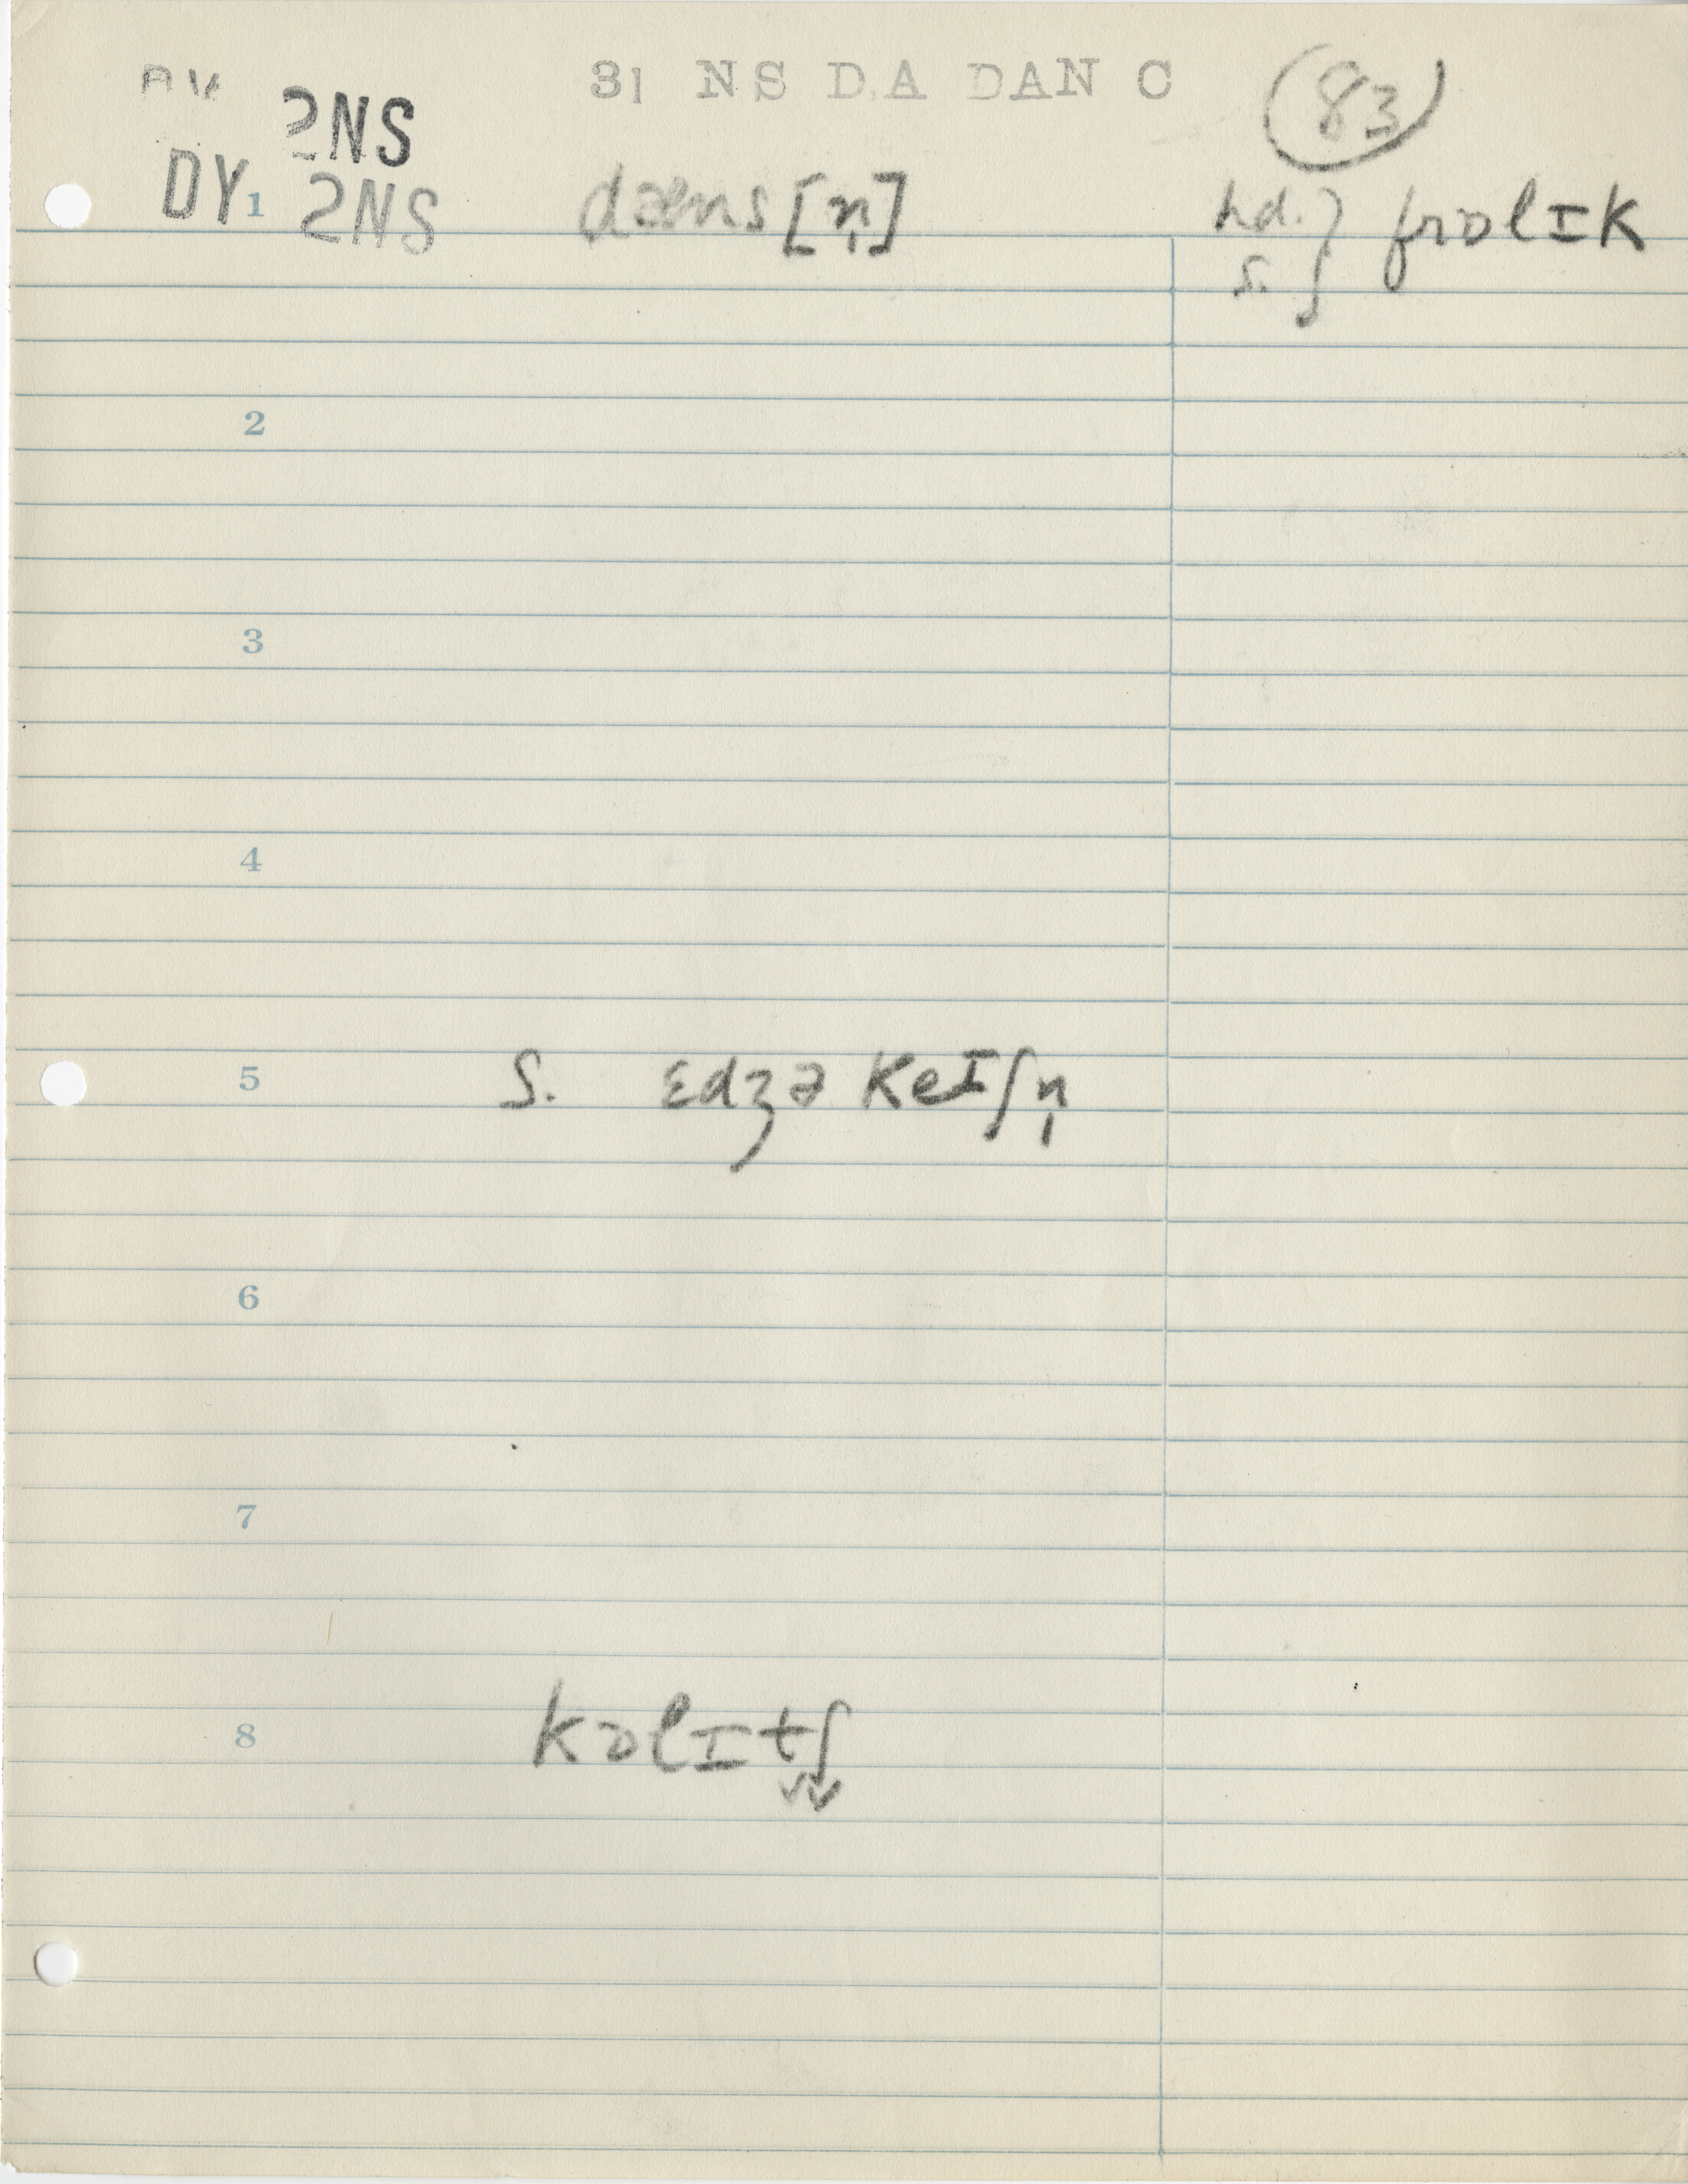 31 NS DA DAN C 83
2NS
DY 1 2NS dæns [n̩] hd. } frɒlɪk
s.
2
3
4
5 S. ɛdʒə keɪʃn̩
6
7
8 kɒlɪtʃ